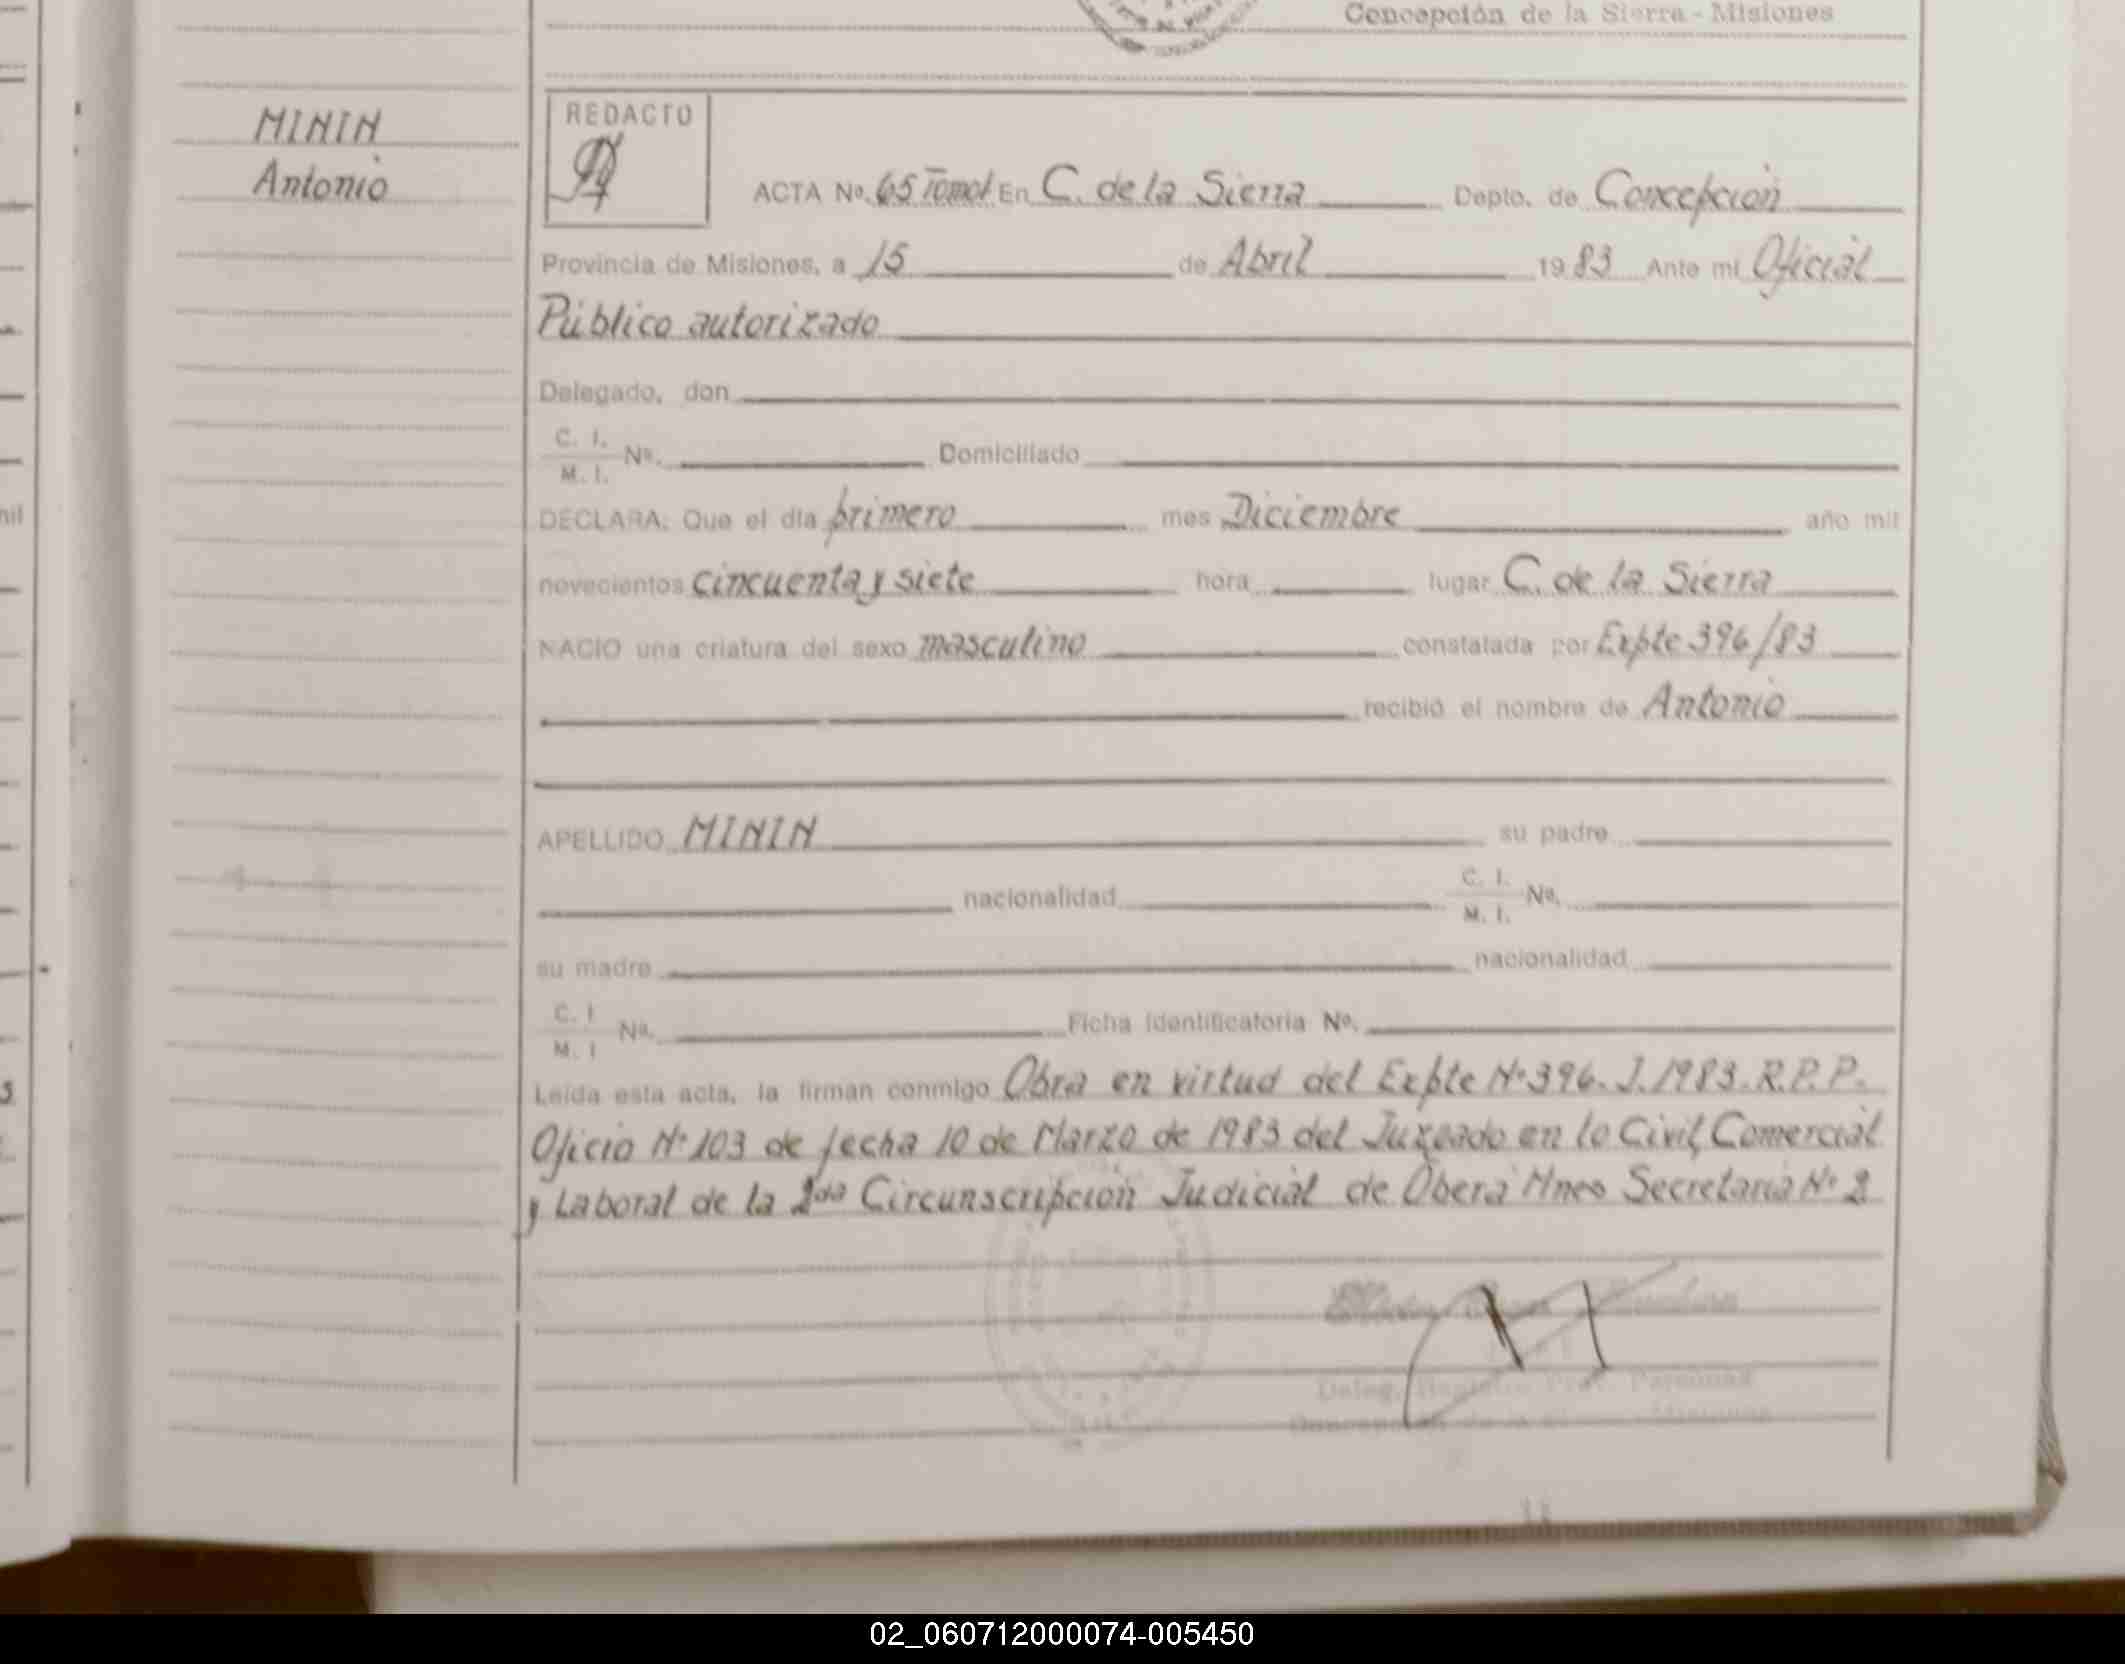 Concepción de la Sierra - Misiones
MININ
Antonio
REDACTO
ACTA Nº. 65 Tomo I En C. de la Sierra Depto. de Concepción
Provincia de Misiones, a 15 de Abril 1983 Ante mi Oficial
Público autorizado
Delegado, don
C. I.
M. I. Nº. Domiciliado
DECLARA: Que el día primero mes Diciembre año mil
novecientos cincuenta y siete hora lugar C. de la Sierra
NACIO una criatura del sexo masculino constatada por Expte 396/83
recibió el nombre de Antonio
APELLIDO MININ su padre
nacionalidad C. I.
M. I. Nº.
su madre nacionalidad
C. I
M. I Nº. Ficha Identificatoria Nº.
Leída esta acta, la firman conmigo Obra en virtud del Expte Nº 396. J. 1983. R.P.P.
Oficio Nº 103 de fecha 10 de Marzo de 1983 del Juzgado en lo Civil, Comercial
y Laboral de la 2da Circunscripción Judicial de Oberá Mnes Secretaria Nº 2
Deleg. Registro Prov. Personas
Concepción de la Sierra - Misiones
02_060712000074-005450